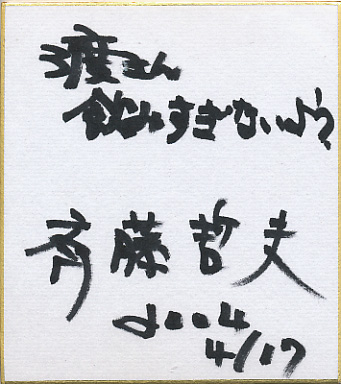 渡さん
飲みすぎないよう
斉藤哲夫
2004
4/17